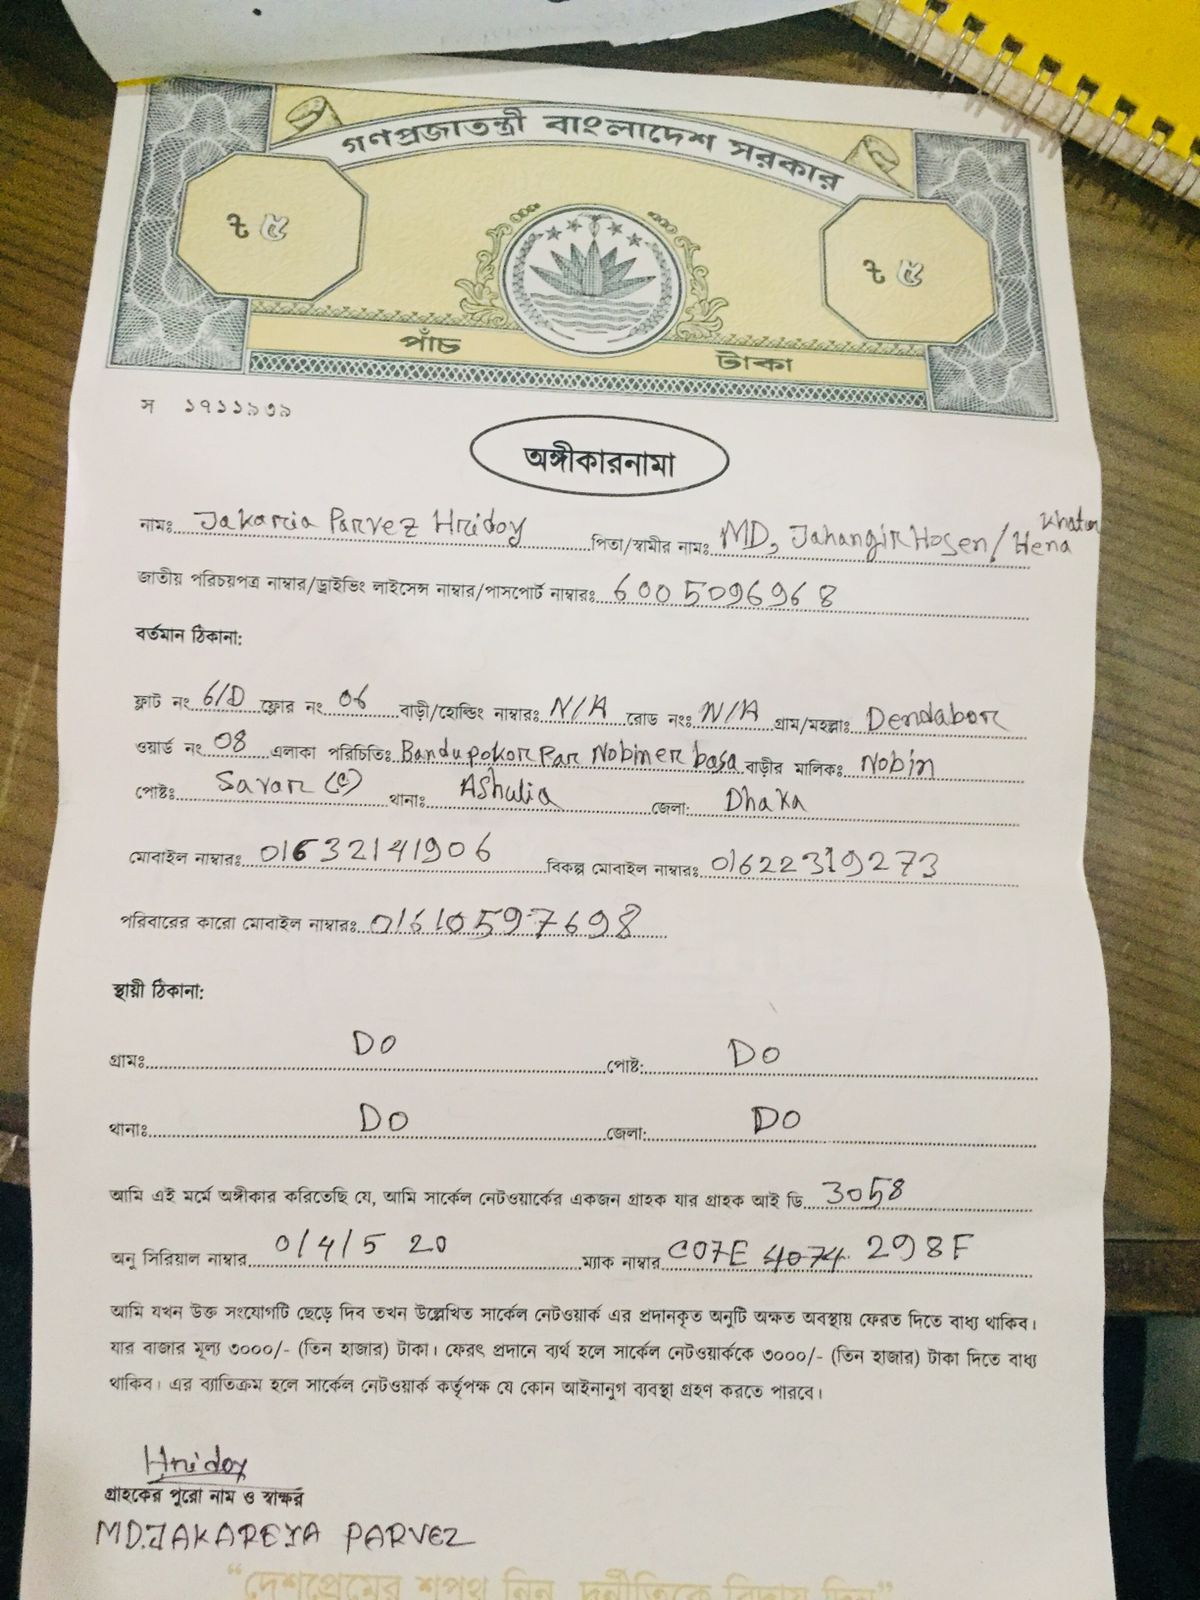 গণপ্রজাতন্ত্রী বাংলাদেশ সরকার
৳ ৫ ৳ ৫
পাঁচ টাকা
স ১৭১১৯৩৯
অঙ্গীকারনামা
নামঃ Jakaria Parvez Hridoy পিতা/স্বামীর নামঃ MD, Jahangir Hosen/Hena Khatun
জাতীয় পরিচয়পত্র নাম্বার/ড্রাইভিং লাইসেন্স নাম্বার/পাসপোর্ট নাম্বারঃ 6005096968
বর্তমান ঠিকানা:
ফ্লাট নং 6/D ফ্লোর নং 06 বাড়ী/হোল্ডিং নাম্বারঃ N/A রোড নংঃ N/A গ্রাম/মহল্লাঃ Dendabor
ওয়ার্ড নং 08 এলাকা পরিচিতিঃ Bandu pokor Par Nobiner basa বাড়ীর মালিকঃ Nobin
পোষ্টঃ Savar (C) থানাঃ Ashulia জেলা: Dhaka
মোবাইল নাম্বারঃ 01632141906 বিকল্প মোবাইল নাম্বারঃ 01622319273
পরিবারের কারো মোবাইল নাম্বারঃ 01610597698
স্থায়ী ঠিকানা:
গ্রামঃ DO পোষ্ট: DO
থানাঃ DO জেলা: DO
আমি এই মর্মে অঙ্গীকার করিতেছি যে, আমি সার্কেল নেটওয়ার্কের একজন গ্রাহক যার গ্রাহক আই ডি 3058
অনু সিরিয়াল নাম্বার 0/4/5 20 ম্যাক নাম্বার C07E 4074 298F
আমি যখন উক্ত সংযোগটি ছেড়ে দিব তখন উল্লেখিত সার্কেল নেটওয়ার্ক এর প্রদানকৃত অনুটি অক্ষত অবস্থায় ফেরত দিতে বাধ্য থাকিব।
যার বাজার মূল্য ৩০০০/- (তিন হাজার) টাকা। ফেরৎ প্রদানে ব্যর্থ হলে সার্কেল নেটওয়ার্ককে ৩০০০/- (তিন হাজার) টাকা দিতে বাধ্য
থাকিব। এর ব্যাতিক্রম হলে সার্কেল নেটওয়ার্ক কর্তৃপক্ষ যে কোন আইনানুগ ব্যবস্থা গ্রহণ করতে পারবে।
Hridoy
গ্রাহকের পুরো নাম ও স্বাক্ষর
MD.JAKAREYA PARVEZ
“দেশপ্রেমের শপথ নিন, দুর্নীতিকে বিদায় দিন”